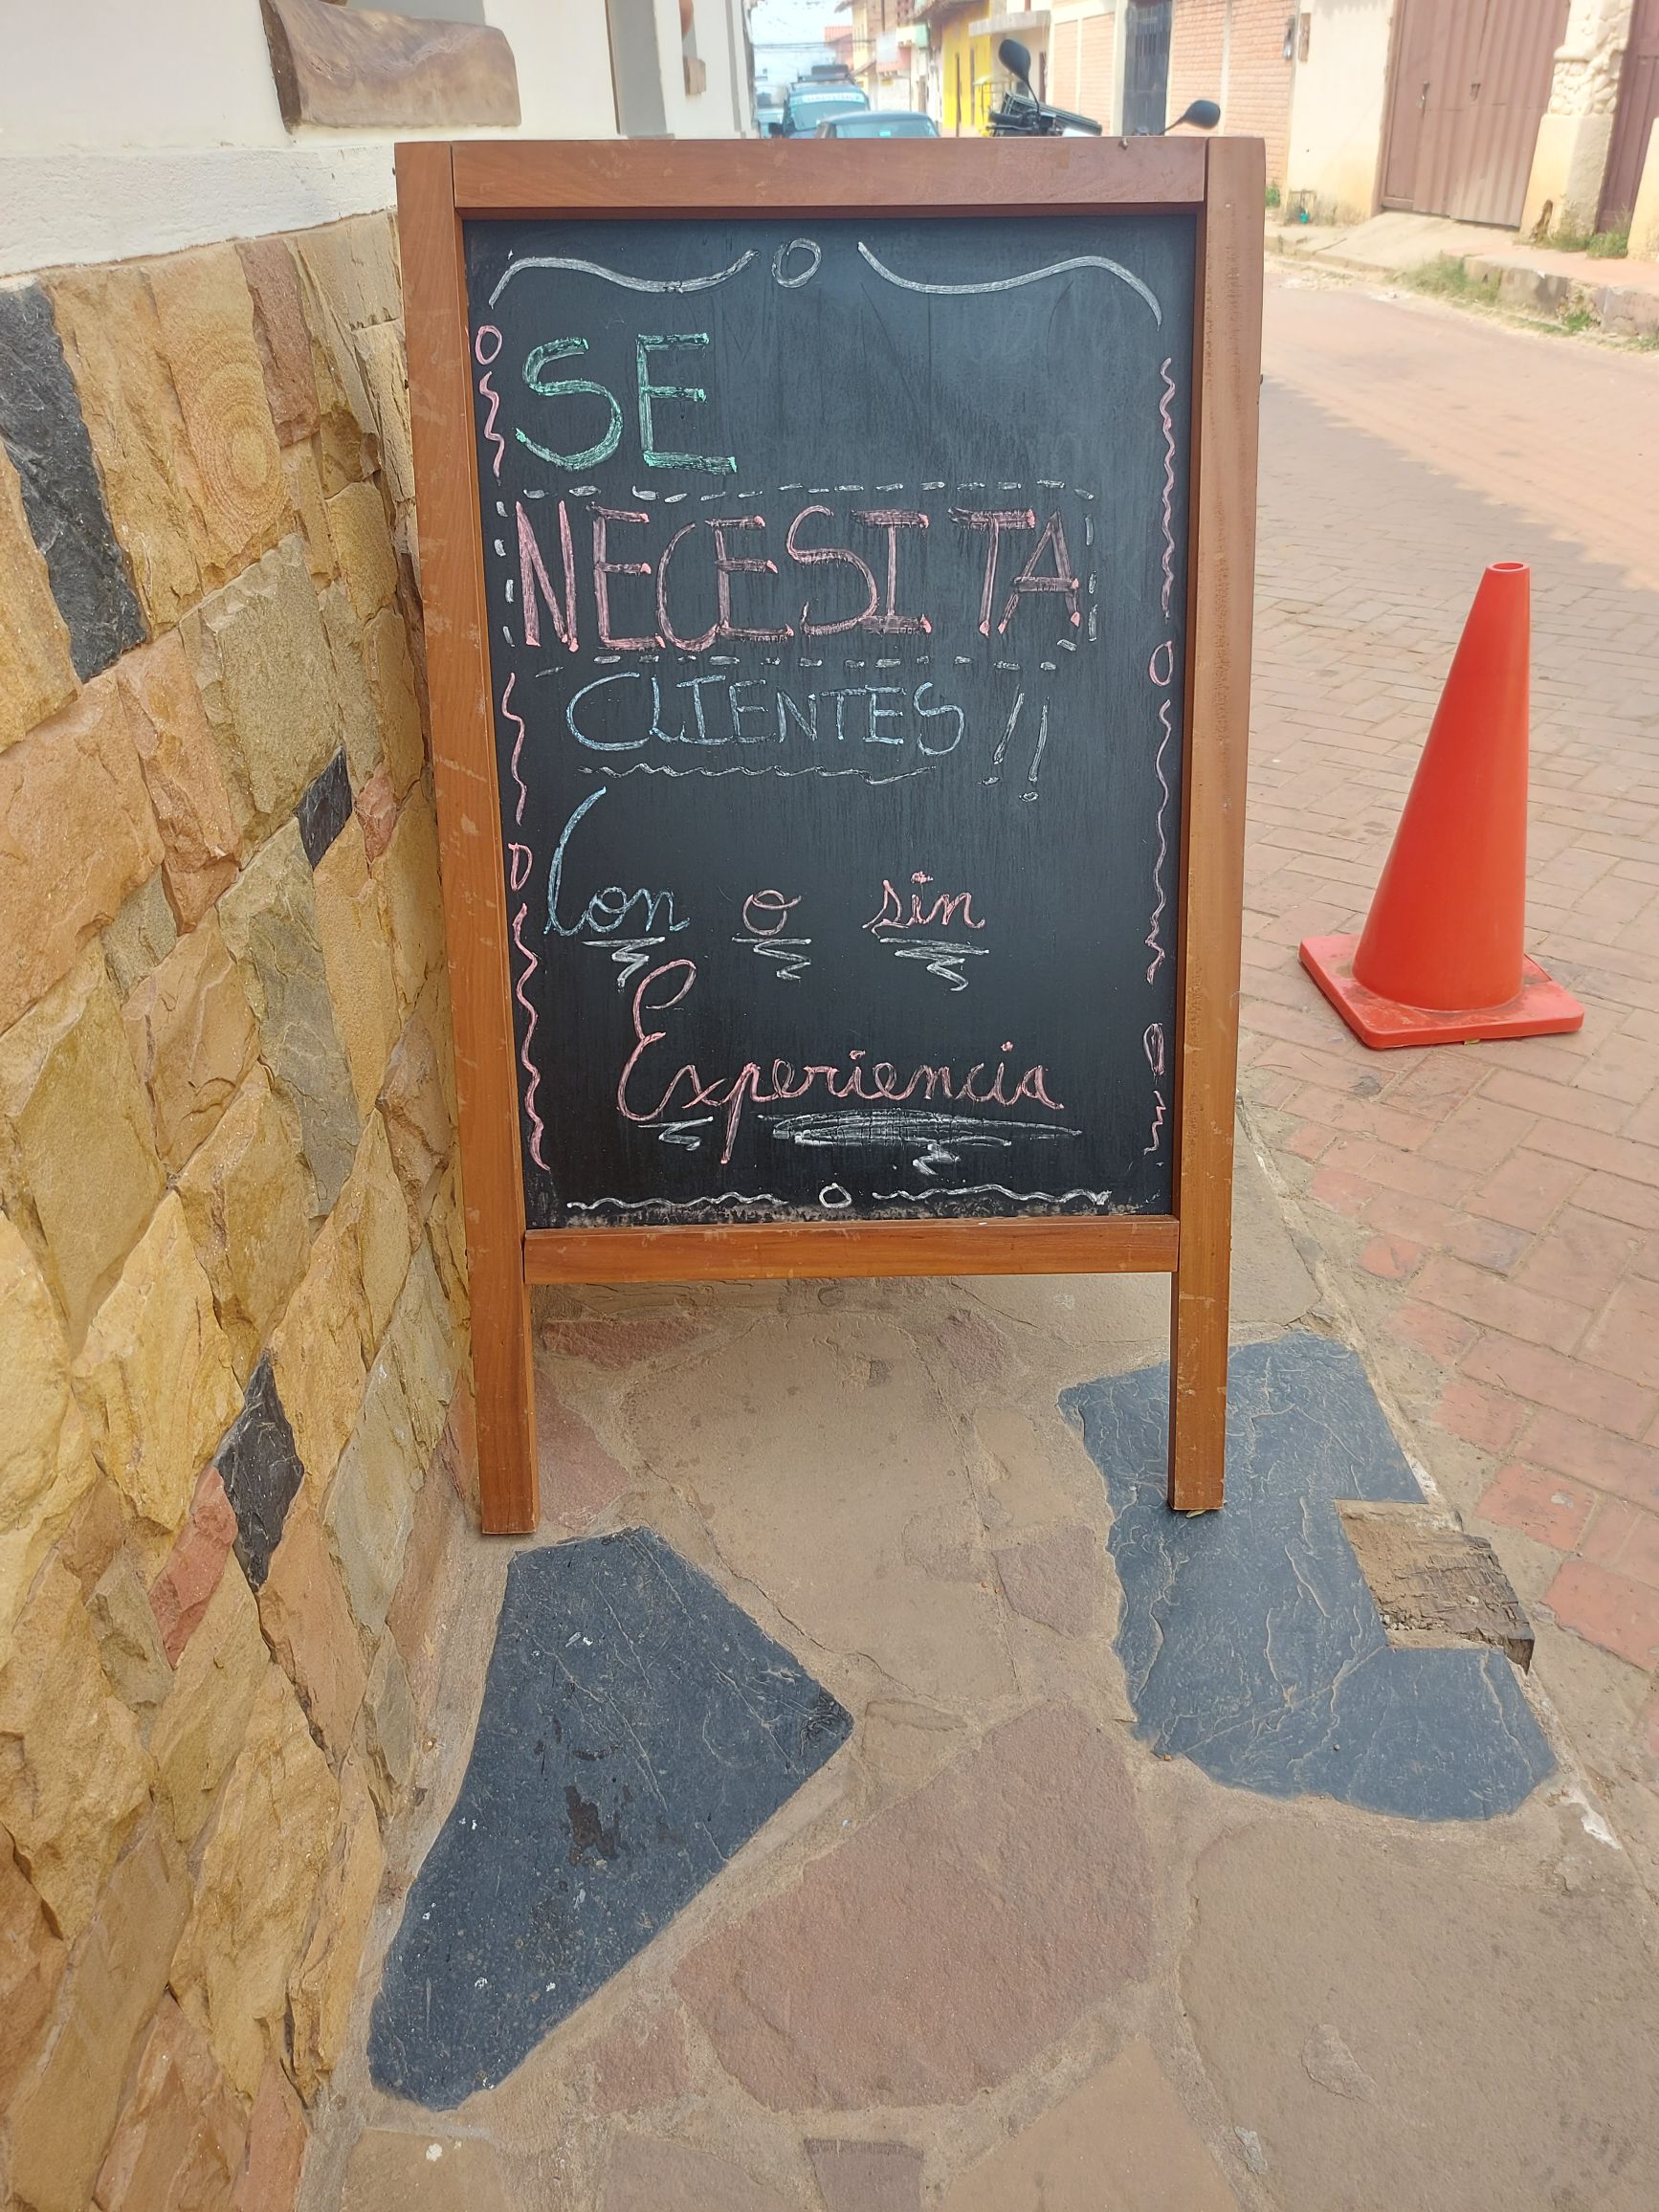 SE
NECESITA
CLIENTES!!
Con o sin
Experiencia